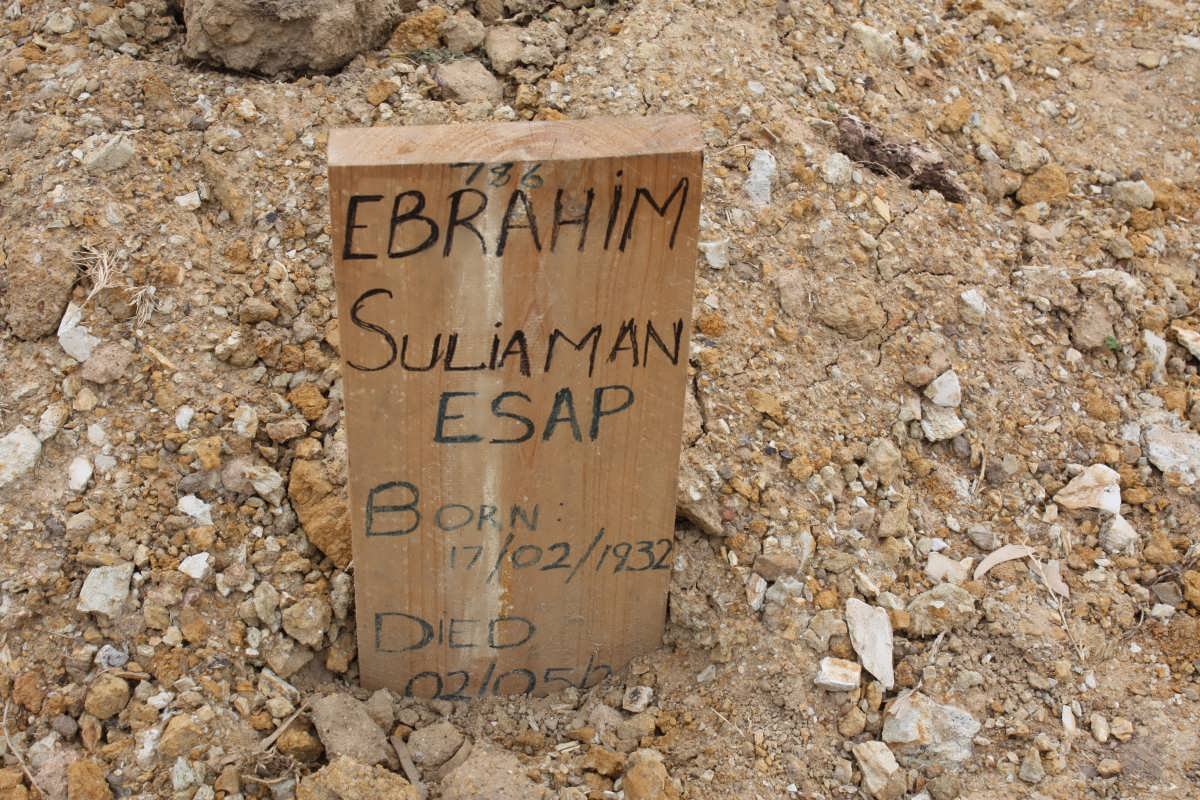 786
EBRAHIM
SULIAMAN
ESAP
BORN
17/02/1932
DIED
02/05/